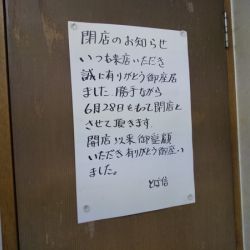 閉店のお知らせ
いつも来店いただき
誠に有りがとう御座居
ました 勝手ながら
6月28日をもって閉店と
させて頂きます
開店以来御愛顧
いただき有りがとう御座い
ました。